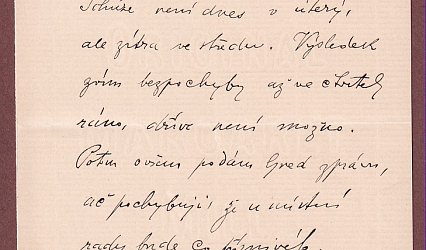 Schůze není dnes v úterý,
ale zítra ve středu. Výsledek
zvím bezpochyby až ve čtvrtek
ráno, dříve není možno.
Potom ovšem podám hned zprávu,
ač pochybuji, že u místní
rady bude co